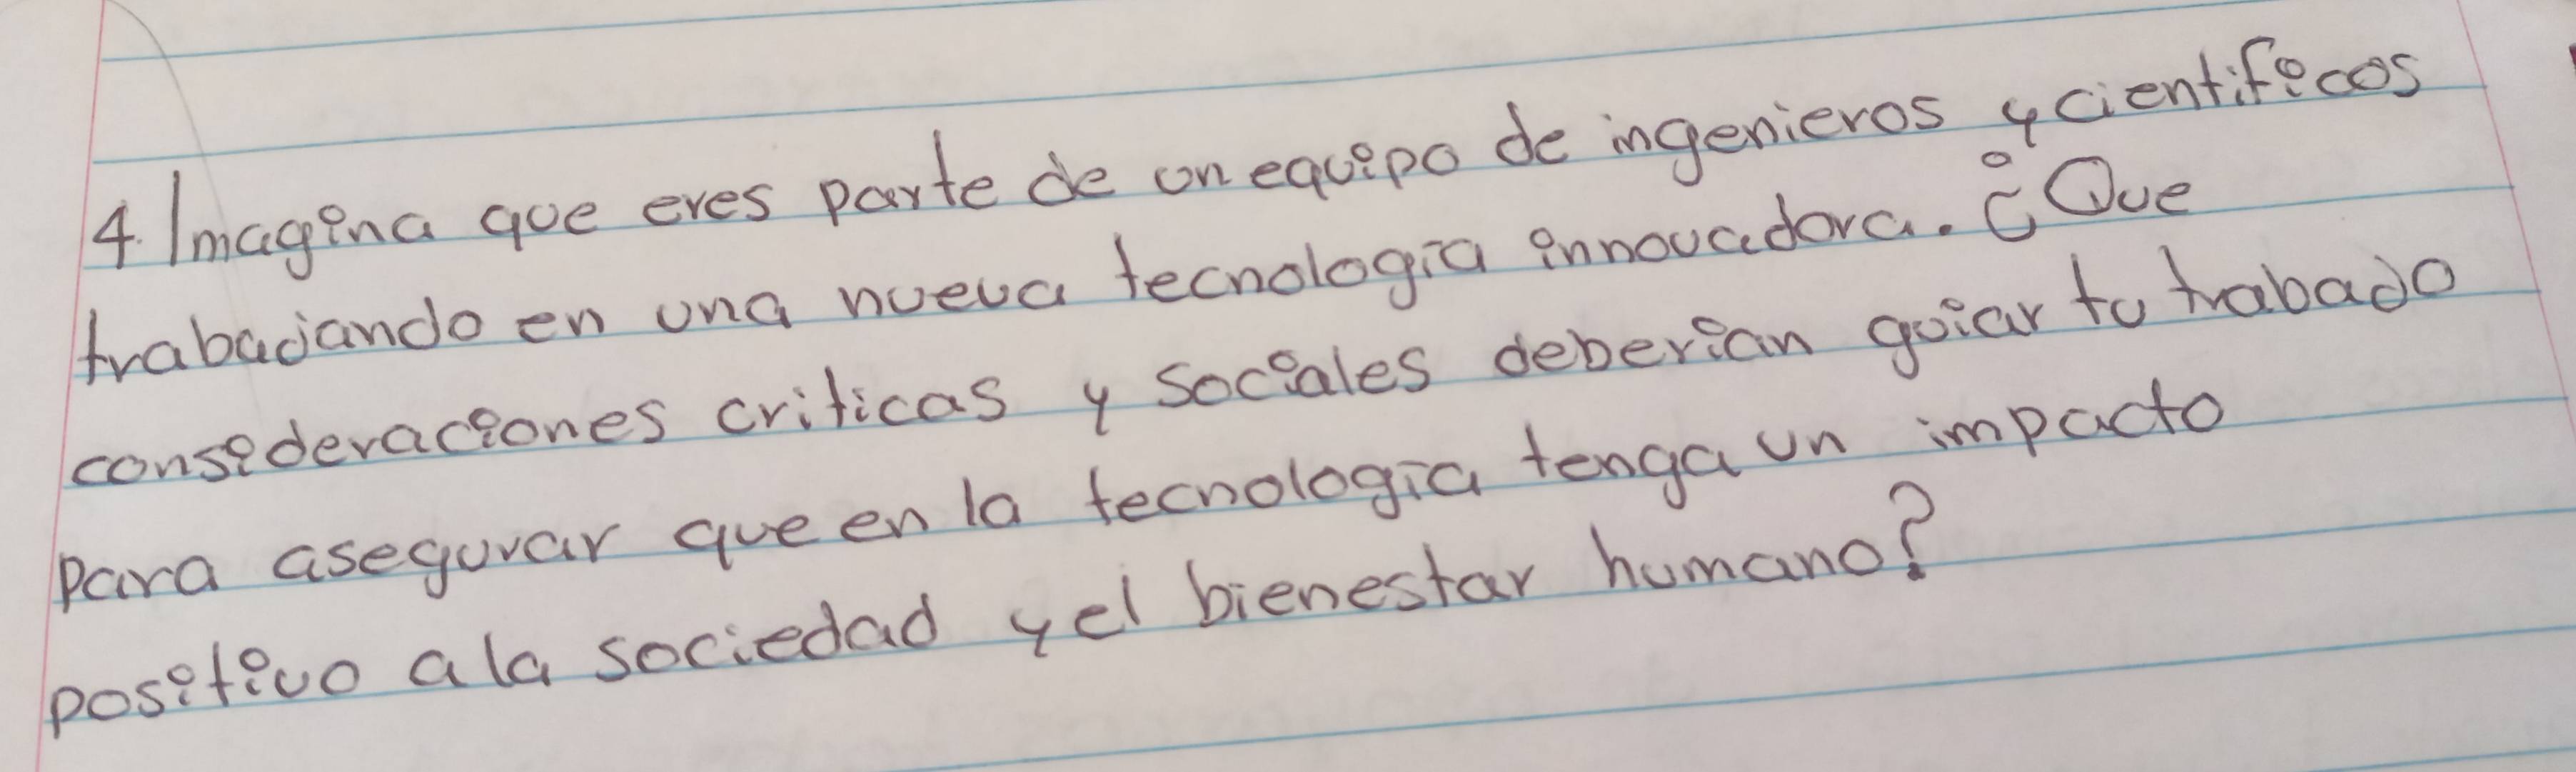 4. Imagina que eres parte de un equipo de ingenieros y cientificos
trabajando en una nueva tecnología innovadora. ¿Que
consideraciones criticas y sociales deberian guiar tu trabado
para asegurar que en la tecnología tenga un impacto
positivo a la sociedad y el bienestar humano?